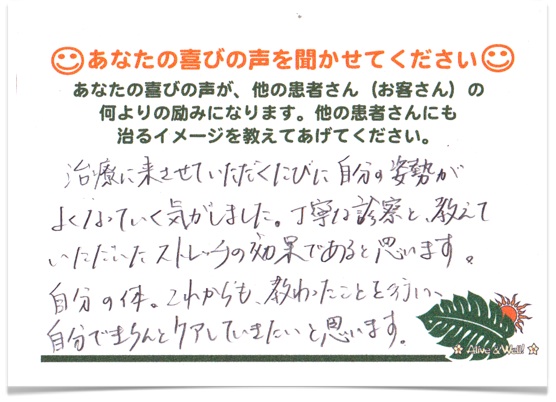 あなたの喜びの声を聞かせてください
あなたの喜びの声が、他の患者さん（お客さん）の
何よりの励みになります。他の患者さんにも
治るイメージを教えてあげてください。
治療に来させていただくたびに自分の姿勢が
よくなっていく気がしました。丁寧な診察と、教えて
いただいたストレッチの効果であると思います。
自分の体。これからも、教わったことを行い、
自分できちんとケアしていきたいと思います。
☆ Alive & Well! ☆